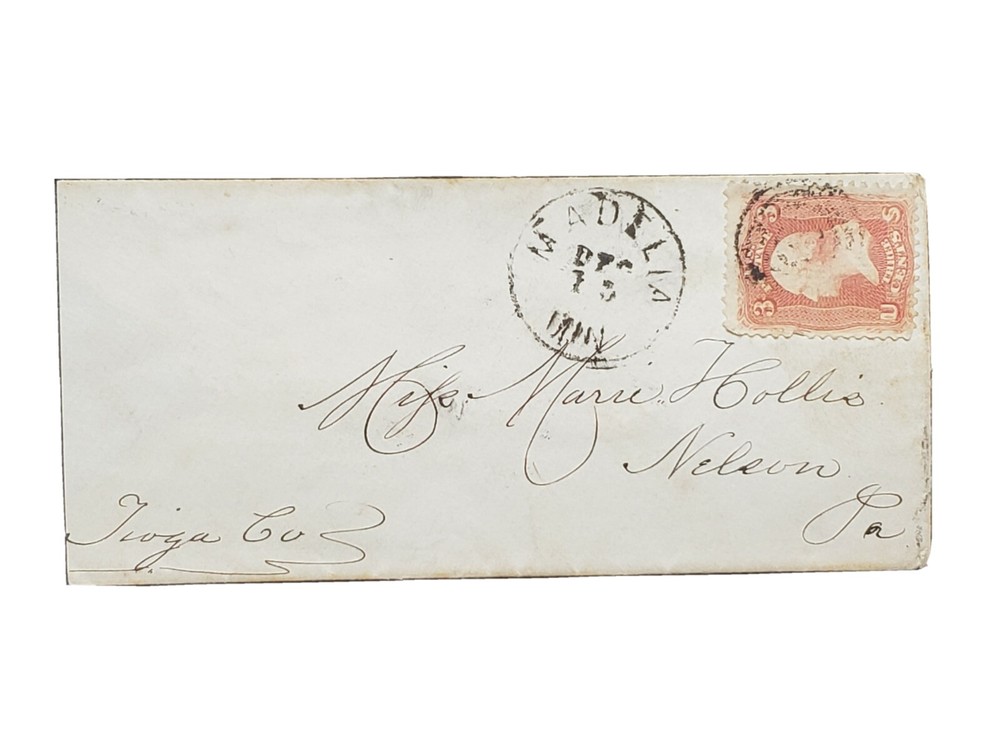 MADELIA
DEC
13
MIN
3 3
U S
THREE CENTS
Miss Marie Hollis
Nelson
Pa
Tioga Co